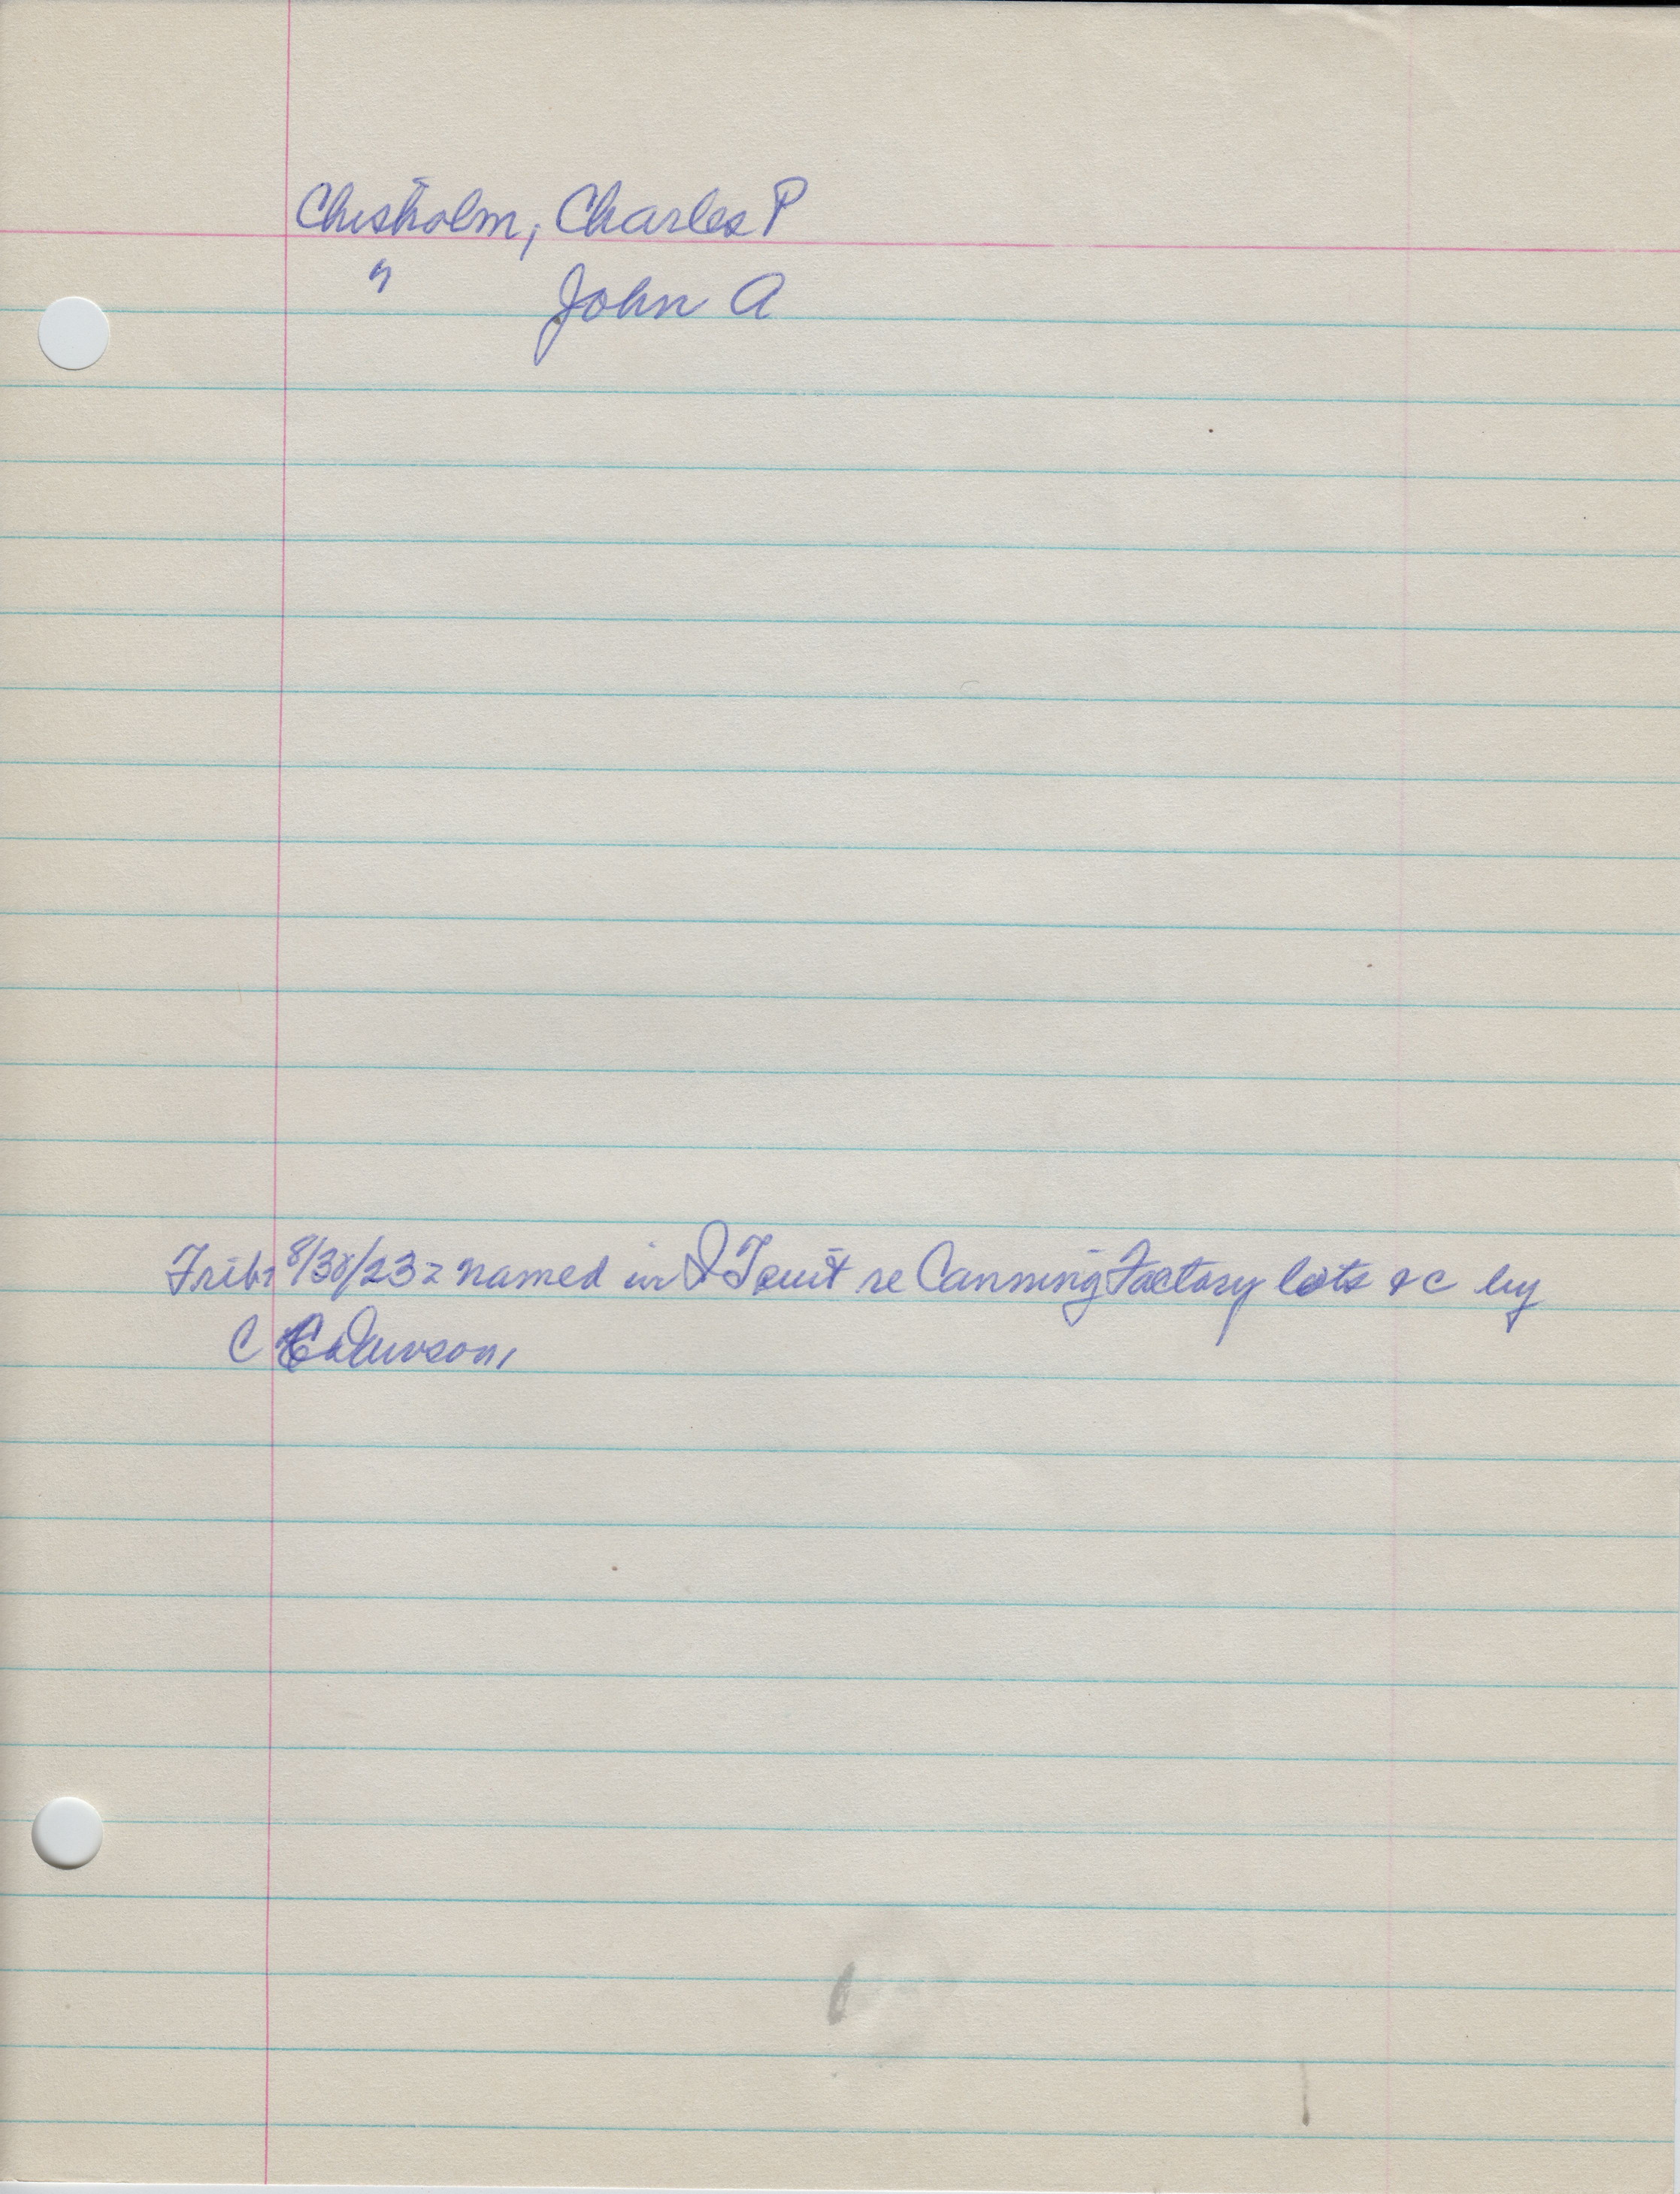 Chisholm, Charles P
" John A
Trib: 8/30/23 = named in QT suit re Canning Factory lots &c by
C E Lawson,